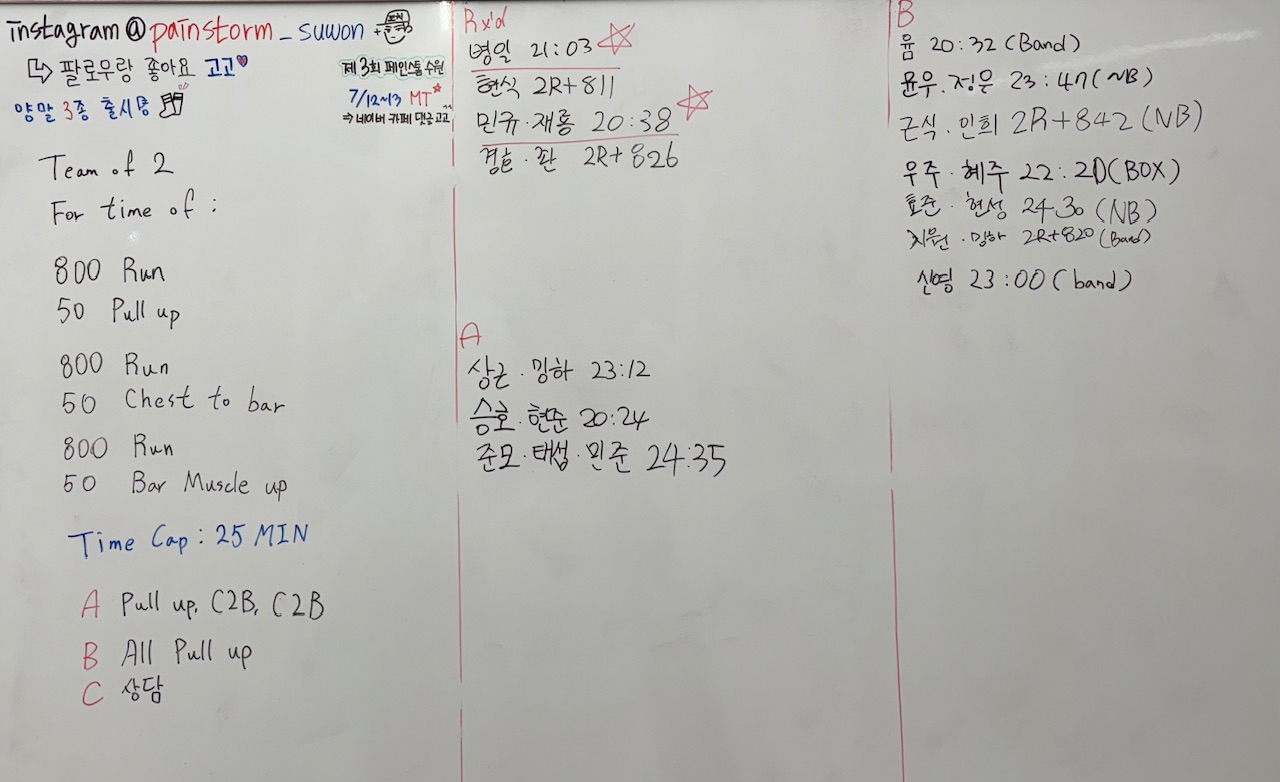 instagram@painstorm_suwon
↳ 팔로우랑 좋아요 고고♥
양말 3종 출시중
제3회 페인스톰 수원
7/12~13 MT
⇒ 네이버 카페 댓글 고고
Team of 2
For time of :
800 Run
50 Pull up
800 Run
50 Chest to bar
800 Run
50 Bar Muscle up
Time Cap : 25 MIN
A Pull up, C2B, C2B
B All Pull up
C 상담
Rx'd
병일 21:03 ☆
현식 2R+811
민규·재룡 20:38 ☆
경호· 2R+826
A
상근·밍하 23:12
승호·현준 20:24
준모·태섭·민준 24:35
B
윰 20:32 (Band)
윤우.정은 23:47(NB)
근식.인희 2R+842(NB)
우주·혜주 22:20(BOX)
효준·현성 24:30 (NB)
지원·밍하 2R+820 (Band)
신영 23:00 (band)